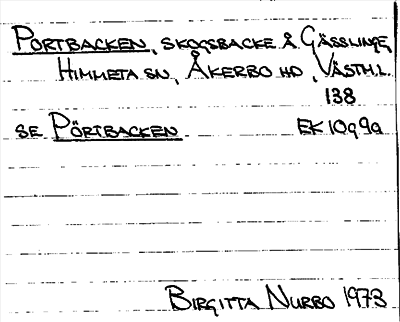 PORTBACKEN, SKOGSBACKE Å GÄSSLINGE,
HIMMETA SN, ÅKERBO HD, VÄSTML.
138
SE PÖRTBACKEN EK 10g9a
BIRGITTA NURBO 1973